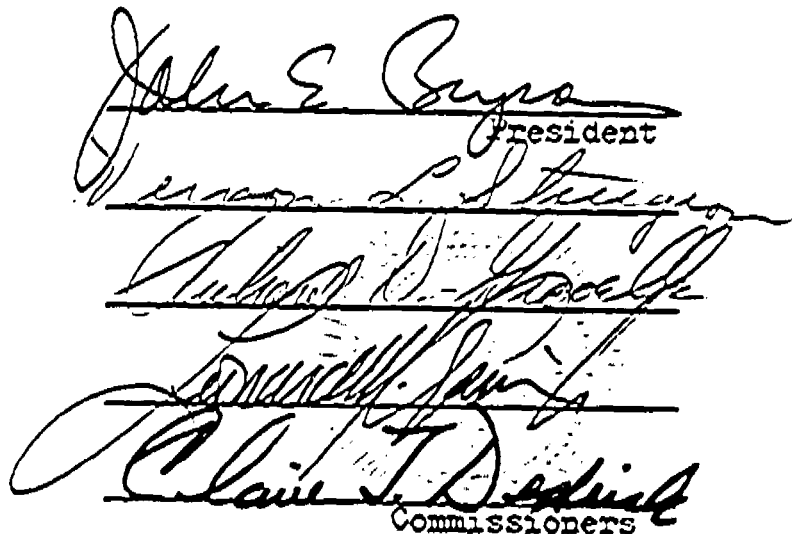 John E. Bryson
President
Vernon L. Sturgeon
Richard D. Gravelle
Leonard M.
Claire T. Dedrick
Commissioners